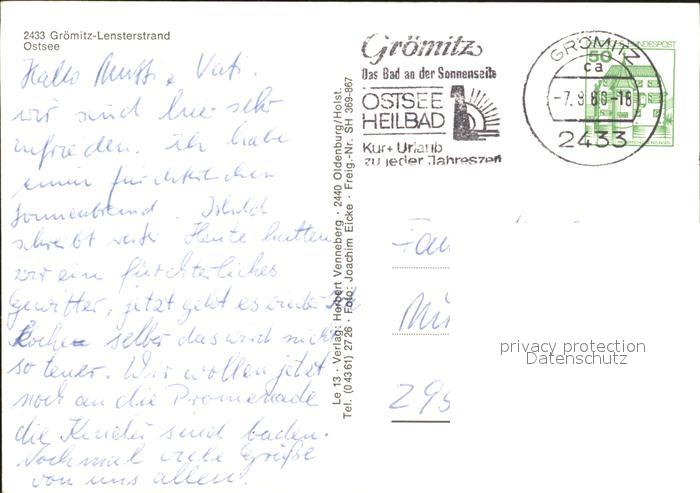 2433 Grömitz-Lensterstrand
Ostsee
Hallo Mutti, Vati.
wir sind hier sehr
zufrieden. ich habe
einen fürchterlichen
Sonnenbrand.
schreibt Heute hatten
wir ein fürchterliches
Gewitter, jetzt geht es wieder
Kochen selber das wird nicht
so teuer. Wir wollen jetzt
noch an die Promenade
die Kinder sind baden.
Nochmal viele Grüße
von uns allen.
Le 13 · Verlag: Herbert Venneberg · 2440 Oldenburg/Holst.
Tel. (0 43 61) 27 26 · Foto: Joachim Eicke · Freig.-Nr. SH 369-867
Grömitz
Das Bad an der Sonnenseite
OSTSEE
HEILBAD
Kur + Urlaub
zu jeder Jahreszeit
GRÖMITZ
ca
2433
50
BUNDESPOST
Fam
295
privacy protection
Datenschutz